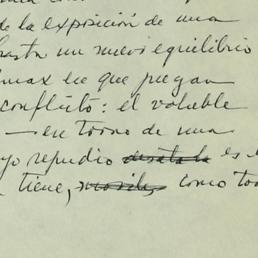 de la exposición de una
hasta un nuevo equilibrio
max en que juegan
conflicto: el voluble
— en torno de una
yo repudio desata la es
tiene, como to